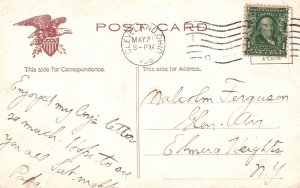 POST CARD
CLEVELAND, OHIO
MAY 21
8-PM
This side for Correspondence.
This side for Address.
Enjoyed my long letter
so much. hope to see
you all Sat. night
Malcolm Ferguson
Glen Ary
Elmira Heights
N.Y.